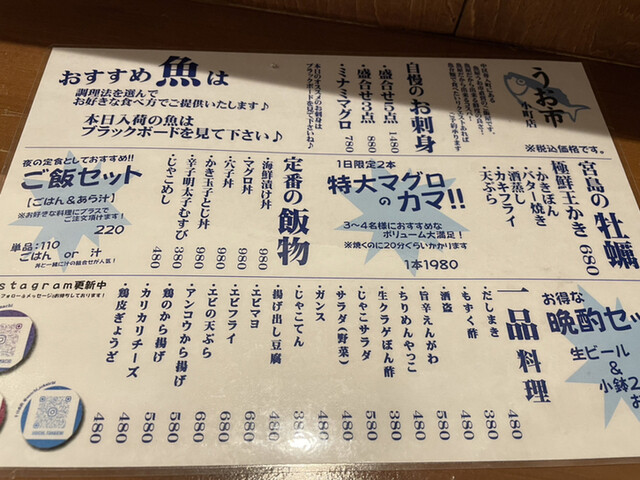 うお市
小町店
※税込価格です。
自慢のお刺身
・盛合せ5点 1480
・盛合せ3点 880
・ミナミマグロ 780
本日のオススメのお刺身は
ブラックボードを見て下さいね♪
おすすめ魚は
調理法を選んで
お好きな食べ方でご提供いたします♪
本日入荷の魚は
ブラックボードを見て下さい♪
宮島の牡蠣
極鮮王かき 680
・かきぽん
・バター焼き
・酒蒸し
・カキフライ
・天ぷら
1日限定2本
特大マグロ
のカマ!!
3〜4名様におすすめな
ボリューム大満足!
※焼くのに20分くらいかかります
1本1980
定番の飯物
・海鮮漬け丼 980
・マグロ丼 980
・穴子丼 980
・かき玉子とじ丼 980
・辛子明太子むすび 380
・じゃこめし 480
夜の定食としておすすめ!!
ご飯セット
【ごはん&あら汁】
※お好きな料理にプラスで
ご注文頂けます!
220
単品:110
ごはん or 汁
丼と一緒に汁の組合せが人気!
お得な
晩酌セ
生ビール
&
小鉢2
一品料理
・だしまき 480
・もずく酢 380
・酒盗 480
・旨辛えんがわ 480
・ちりめんやっこ 380
・生クラゲぽん酢
・じゃこサラダ 580
・サラダ(野菜) 480
・ガンス 480
・じゃこてん 480
・揚げ出し豆腐 480
・エビマヨ 680
・エビフライ 680
・エビの天ぷら 680
・アンコウから揚げ 680
・鶏のから揚げ 580
・カリカリチーズ 480
・鶏皮ぎょうざ 480
stagram更新中
フォロー&メッセージお待ちしております!